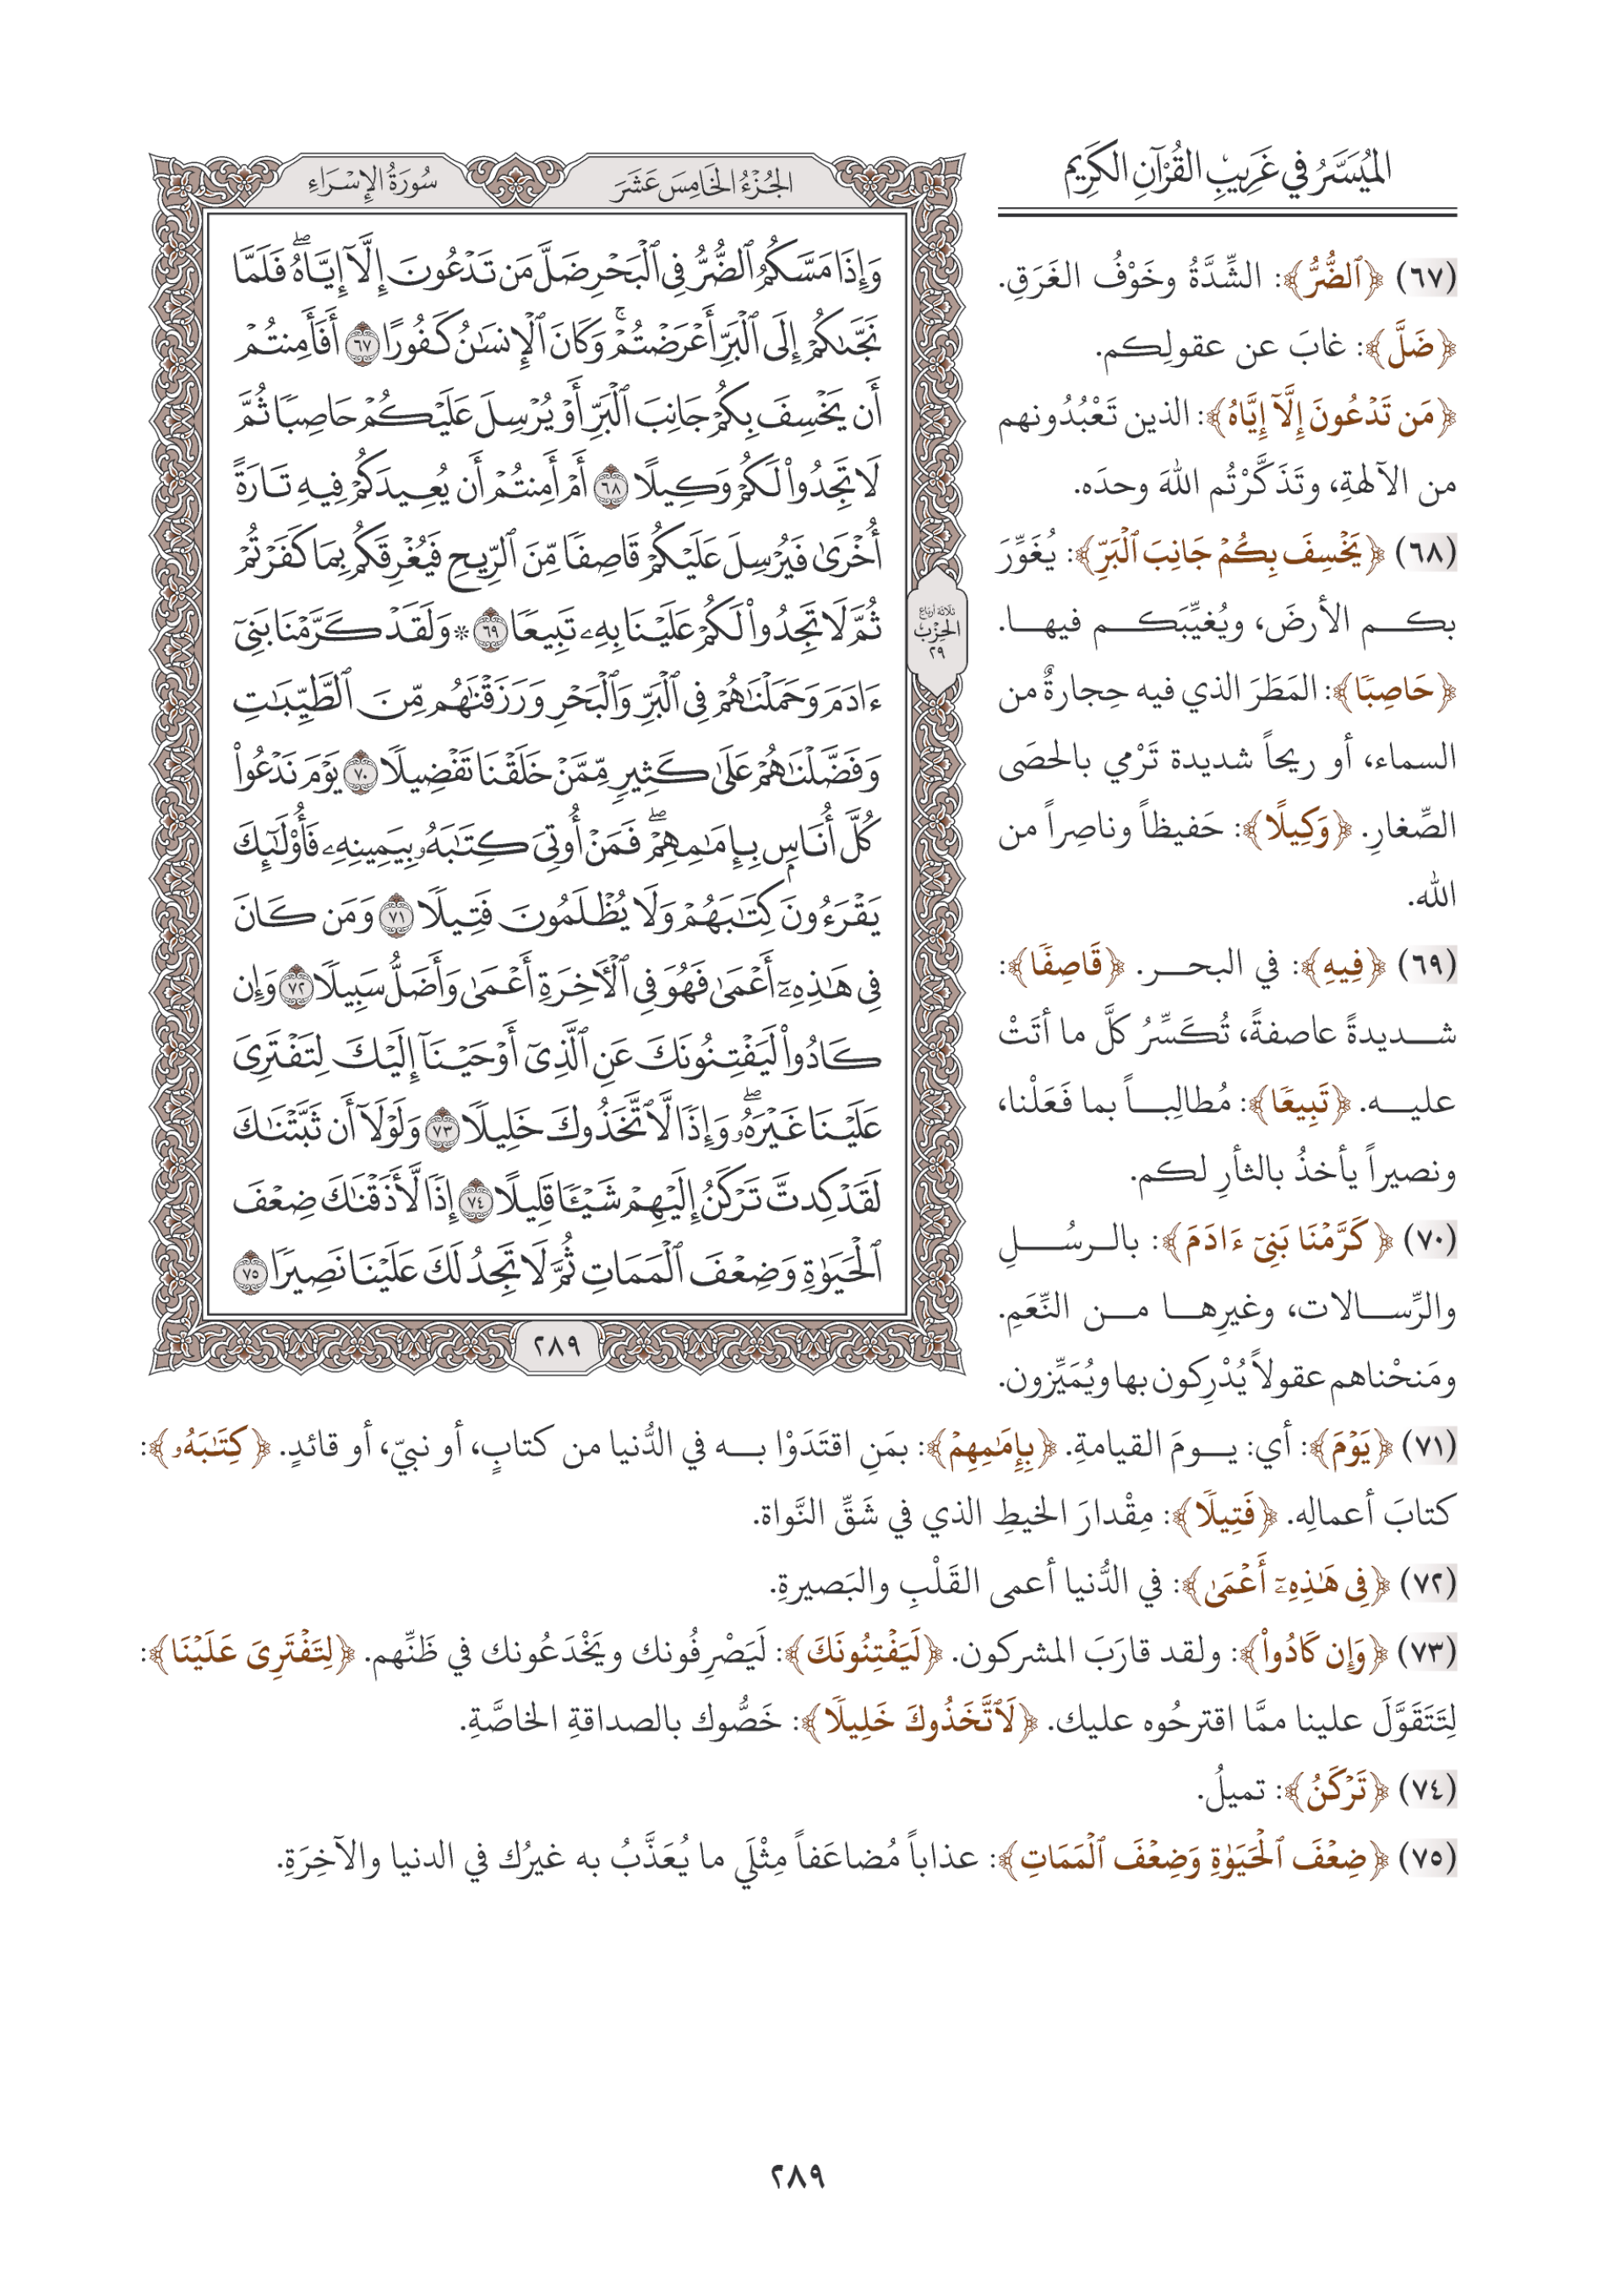 الميُسَّرُ في غَرِيبِ القُرْآنِ الكَرِيم
الجُزْءُ الخَامِسَ عَشَرَ
سُورَةُ الإِسْرَاءِ
وَإِذَا مَسَّكُمُ ٱلضُّرُّ فِي ٱلْبَحْرِ ضَلَّ مَن تَدْعُونَ إِلَّآ إِيَّاهُۖ فَلَمَّا
نَجَّىٰكُمْ إِلَى ٱلْبَرِّ أَعْرَضْتُمْۚ وَكَانَ ٱلْإِنسَٰنُ كَفُورًا ٦٧ أَفَأَمِنتُمْ
أَن يَخْسِفَ بِكُمْ جَانِبَ ٱلْبَرِّ أَوْ يُرْسِلَ عَلَيْكُمْ حَاصِبًا ثُمَّ
لَا تَجِدُوا۟ لَكُمْ وَكِيلًا ٦٨ أَمْ أَمِنتُمْ أَن يُعِيدَكُمْ فِيهِ تَارَةً
أُخْرَىٰ فَيُرْسِلَ عَلَيْكُمْ قَاصِفًا مِّنَ ٱلرِّيحِ فَيُغْرِقَكُم بِمَا كَفَرْتُمْ
ثُمَّ لَا تَجِدُوا۟ لَكُمْ عَلَيْنَا بِهِۦ تَبِيعًا ٦٩ ۞ وَلَقَدْ كَرَّمْنَا بَنِيٓ
ءَادَمَ وَحَمَلْنَٰهُمْ فِي ٱلْبَرِّ وَٱلْبَحْرِ وَرَزَقْنَٰهُم مِّنَ ٱلطَّيِّبَٰتِ
وَفَضَّلْنَٰهُمْ عَلَىٰ كَثِيرٍ مِّمَّنْ خَلَقْنَا تَفْضِيلًا ٧٠ يَوْمَ نَدْعُوا۟
كُلَّ أُنَاسٍۭ بِإِمَٰمِهِمْۖ فَمَنْ أُوتِيَ كِتَٰبَهُۥ بِيَمِينِهِۦ فَأُو۟لَٰٓئِكَ
يَقْرَءُونَ كِتَٰبَهُمْ وَلَا يُظْلَمُونَ فَتِيلًا ٧١ وَمَن كَانَ
فِي هَٰذِهِۦٓ أَعْمَىٰ فَهُوَ فِي ٱلْأٓخِرَةِ أَعْمَىٰ وَأَضَلُّ سَبِيلًا ٧٢ وَإِن
كَادُوا۟ لَيَفْتِنُونَكَ عَنِ ٱلَّذِيٓ أَوْحَيْنَآ إِلَيْكَ لِتَفْتَرِيَ
عَلَيْنَا غَيْرَهُۥۖ وَإِذًا لَّٱتَّخَذُوكَ خَلِيلًا ٧٣ وَلَوْلَآ أَن ثَبَّتْنَٰكَ
لَقَدْ كِدتَّ تَرْكَنُ إِلَيْهِمْ شَيْـًٔا قَلِيلًا ٧٤ إِذًا لَّأَذَقْنَٰكَ ضِعْفَ
ٱلْحَيَوٰةِ وَضِعْفَ ٱلْمَمَاتِ ثُمَّ لَا تَجِدُ لَكَ عَلَيْنَا نَصِيرًا ٧٥
ثلاثة أرباع
الحِزْب
٢٩
٢٨٩
(٦٧) ﴿ٱلضُّرُّ﴾: الشِّدَّةُ وخَوْفُ الغَرَقِ.
﴿ضَلَّ﴾: غابَ عن عقولِكم.
﴿مَن تَدْعُونَ إِلَّآ إِيَّاهُ﴾: الذين تَعْبُدُونهم
من الآلهةِ، وتَذَكَّرْتُم اللهَ وحدَه.
(٦٨) ﴿يَخْسِفَ بِكُمْ جَانِبَ ٱلْبَرِّ﴾: يُغَوِّرَ
بكم الأرضَ، ويُغيِّبَكم فيها.
﴿حَاصِبًا﴾: المَطَرَ الذي فيه حِجارةٌ من
السماء، أو ريحاً شديدة تَرْمي بالحصَى
الصِّغارِ. ﴿وَكِيلًا﴾: حَفيظاً وناصِراً من
الله.
(٦٩) ﴿فِيهِ﴾: في البحر. ﴿قَاصِفًا﴾:
شديدةً عاصفةً، تُكَسِّرُ كلَّ ما أتَتْ
عليه. ﴿تَبِيعًا﴾: مُطالِباً بما فَعَلْنا،
ونصيراً يأخذُ بالثأرِ لكم.
(٧٠) ﴿كَرَّمْنَا بَنِيٓ ءَادَمَ﴾: بالرسُلِ
والرِّسالات، وغيرِها من النِّعَمِ.
ومَنحْناهم عقولاً يُدْرِكون بها ويُمَيِّزون.
(٧١) ﴿يَوْمَ﴾: أي: يومَ القيامةِ. ﴿بِإِمَٰمِهِمْ﴾: بمَنِ اقتَدَوْا به في الدُّنيا من كتابٍ، أو نبيّ، أو قائدٍ. ﴿كِتَٰبَهُۥ﴾:
كتابَ أعمالِه. ﴿فَتِيلًا﴾: مِقْدارَ الخيطِ الذي في شَقِّ النَّواة.
(٧٢) ﴿فِي هَٰذِهِۦٓ أَعْمَىٰ﴾: في الدُّنيا أعمى القَلْبِ والبَصيرةِ.
(٧٣) ﴿وَإِن كَادُوا۟﴾: ولقد قارَبَ المشركون. ﴿لَيَفْتِنُونَكَ﴾: لَيَصْرِفُونك ويَخْدَعُونك في ظَنِّهم. ﴿لِتَفْتَرِيَ عَلَيْنَا﴾:
لِتَتَقَوَّلَ علينا ممَّا اقترحُوه عليك. ﴿لَّٱتَّخَذُوكَ خَلِيلًا﴾: خَصُّوك بالصداقةِ الخاصَّةِ.
(٧٤) ﴿تَرْكَنُ﴾: تميلُ.
(٧٥) ﴿ضِعْفَ ٱلْحَيَوٰةِ وَضِعْفَ ٱلْمَمَاتِ﴾: عذاباً مُضاعَفاً مِثْلَي ما يُعَذَّبُ به غيرُك في الدنيا والآخِرَةِ.
٢٨٩